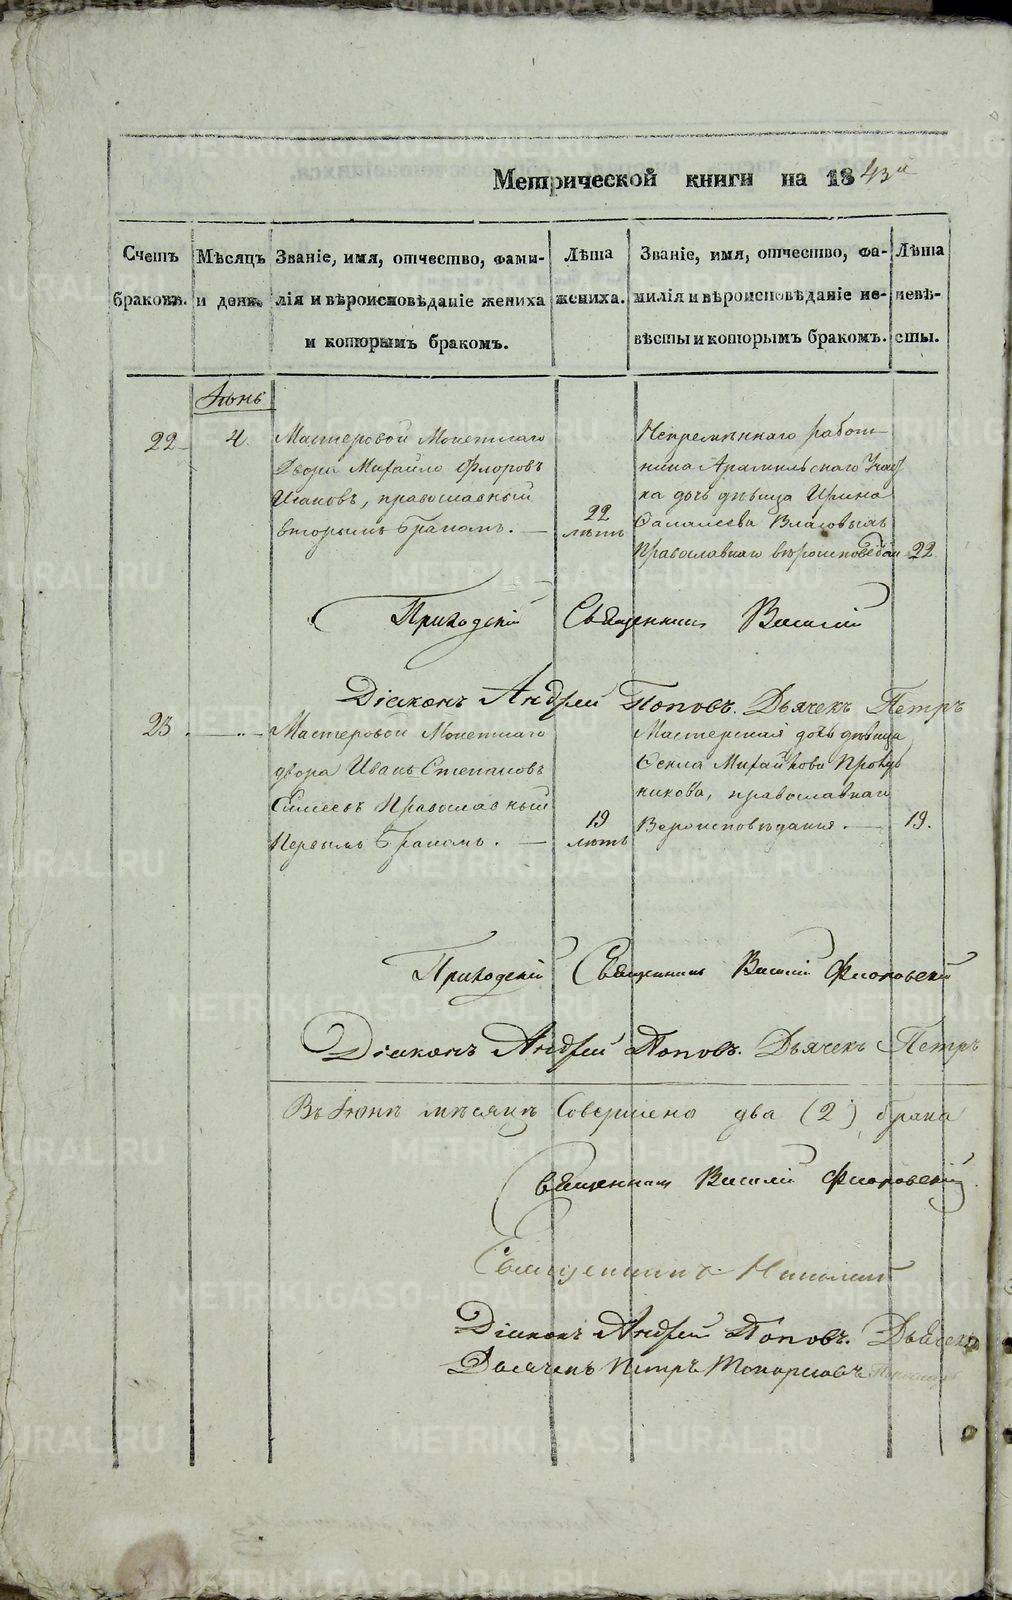 Метрической книги на 1843й
Счетъ браковъ.
Мѣсяцъ и день.
Званіе, имя, отчество, фами-
лія и вѣроисповѣданіе жениха
и которымъ бракомъ.
Лѣта
жениха.
Званіе, имя, отчество, фа-
милія и вѣроисповѣданіе не-
вѣсты и которымъ бракомъ.
Лѣта
невѣ-
сты.
Іюнь
22
4.
Мастеровой Монетнаго
Двора Михайло Флоровъ
православный
вторымъ бракомъ.
22
лѣтъ
Непремѣннаго работ-
ника Арамильскаго
дочь дѣвица Ирина
Православнаго вѣроисповѣдан
22
Приходскій Священникъ Василій
Діаконъ Андрей Поповъ. Дьячекъ Петръ
23
Мастеровой Монетнаго
двора Иванъ Степановъ
Православный
Первымъ бракомъ.
19
лѣтъ
Мастерская дочь дѣвица
Михайлова
православнаго
Вероисповѣдания.
19.
Приходскій Священникъ Василій Фиоловскій
Діаконъ Андрей Поповъ. Дьячекъ Петръ
Въ Іюнѣ мѣсяцѣ Совершено два (2) брака
Священникъ Василій Фиоловскій
Священникъ Николай
Діаконъ Андрей Поповъ.
Дьячекъ Петръ Топорковъ
METRIKI.GASO-URAL.RU